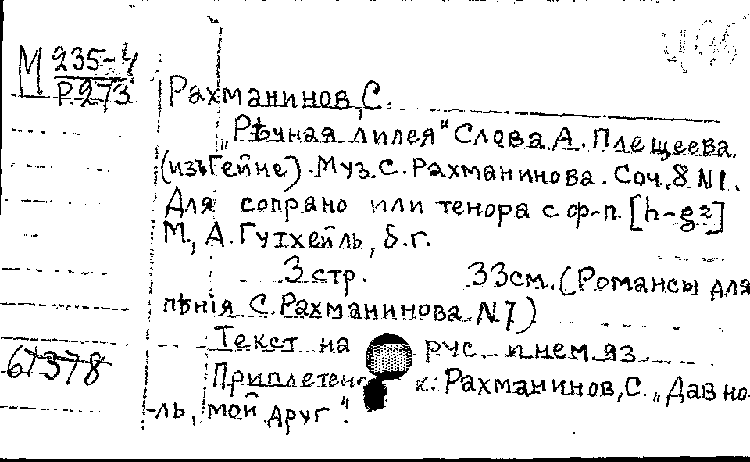 М 235-4
Р273
495
Рахманинов, С.
„Рѣчная лилея“ Слова А. Плещеева
(изъ Гейне). Муз. С. Рахманинова. Соч. 8 N1.
Для сопрано или тенора с ф-п. [h-g²]
М., А. Гутхейль, б.г.
3 стр. 33см. (Романсы для
пѣнія С. Рахманинова N7)
Текст на рус. и нем. яз
61378
Приплетено к: Рахманинов, С. „Давно
-ль, мой друг“.